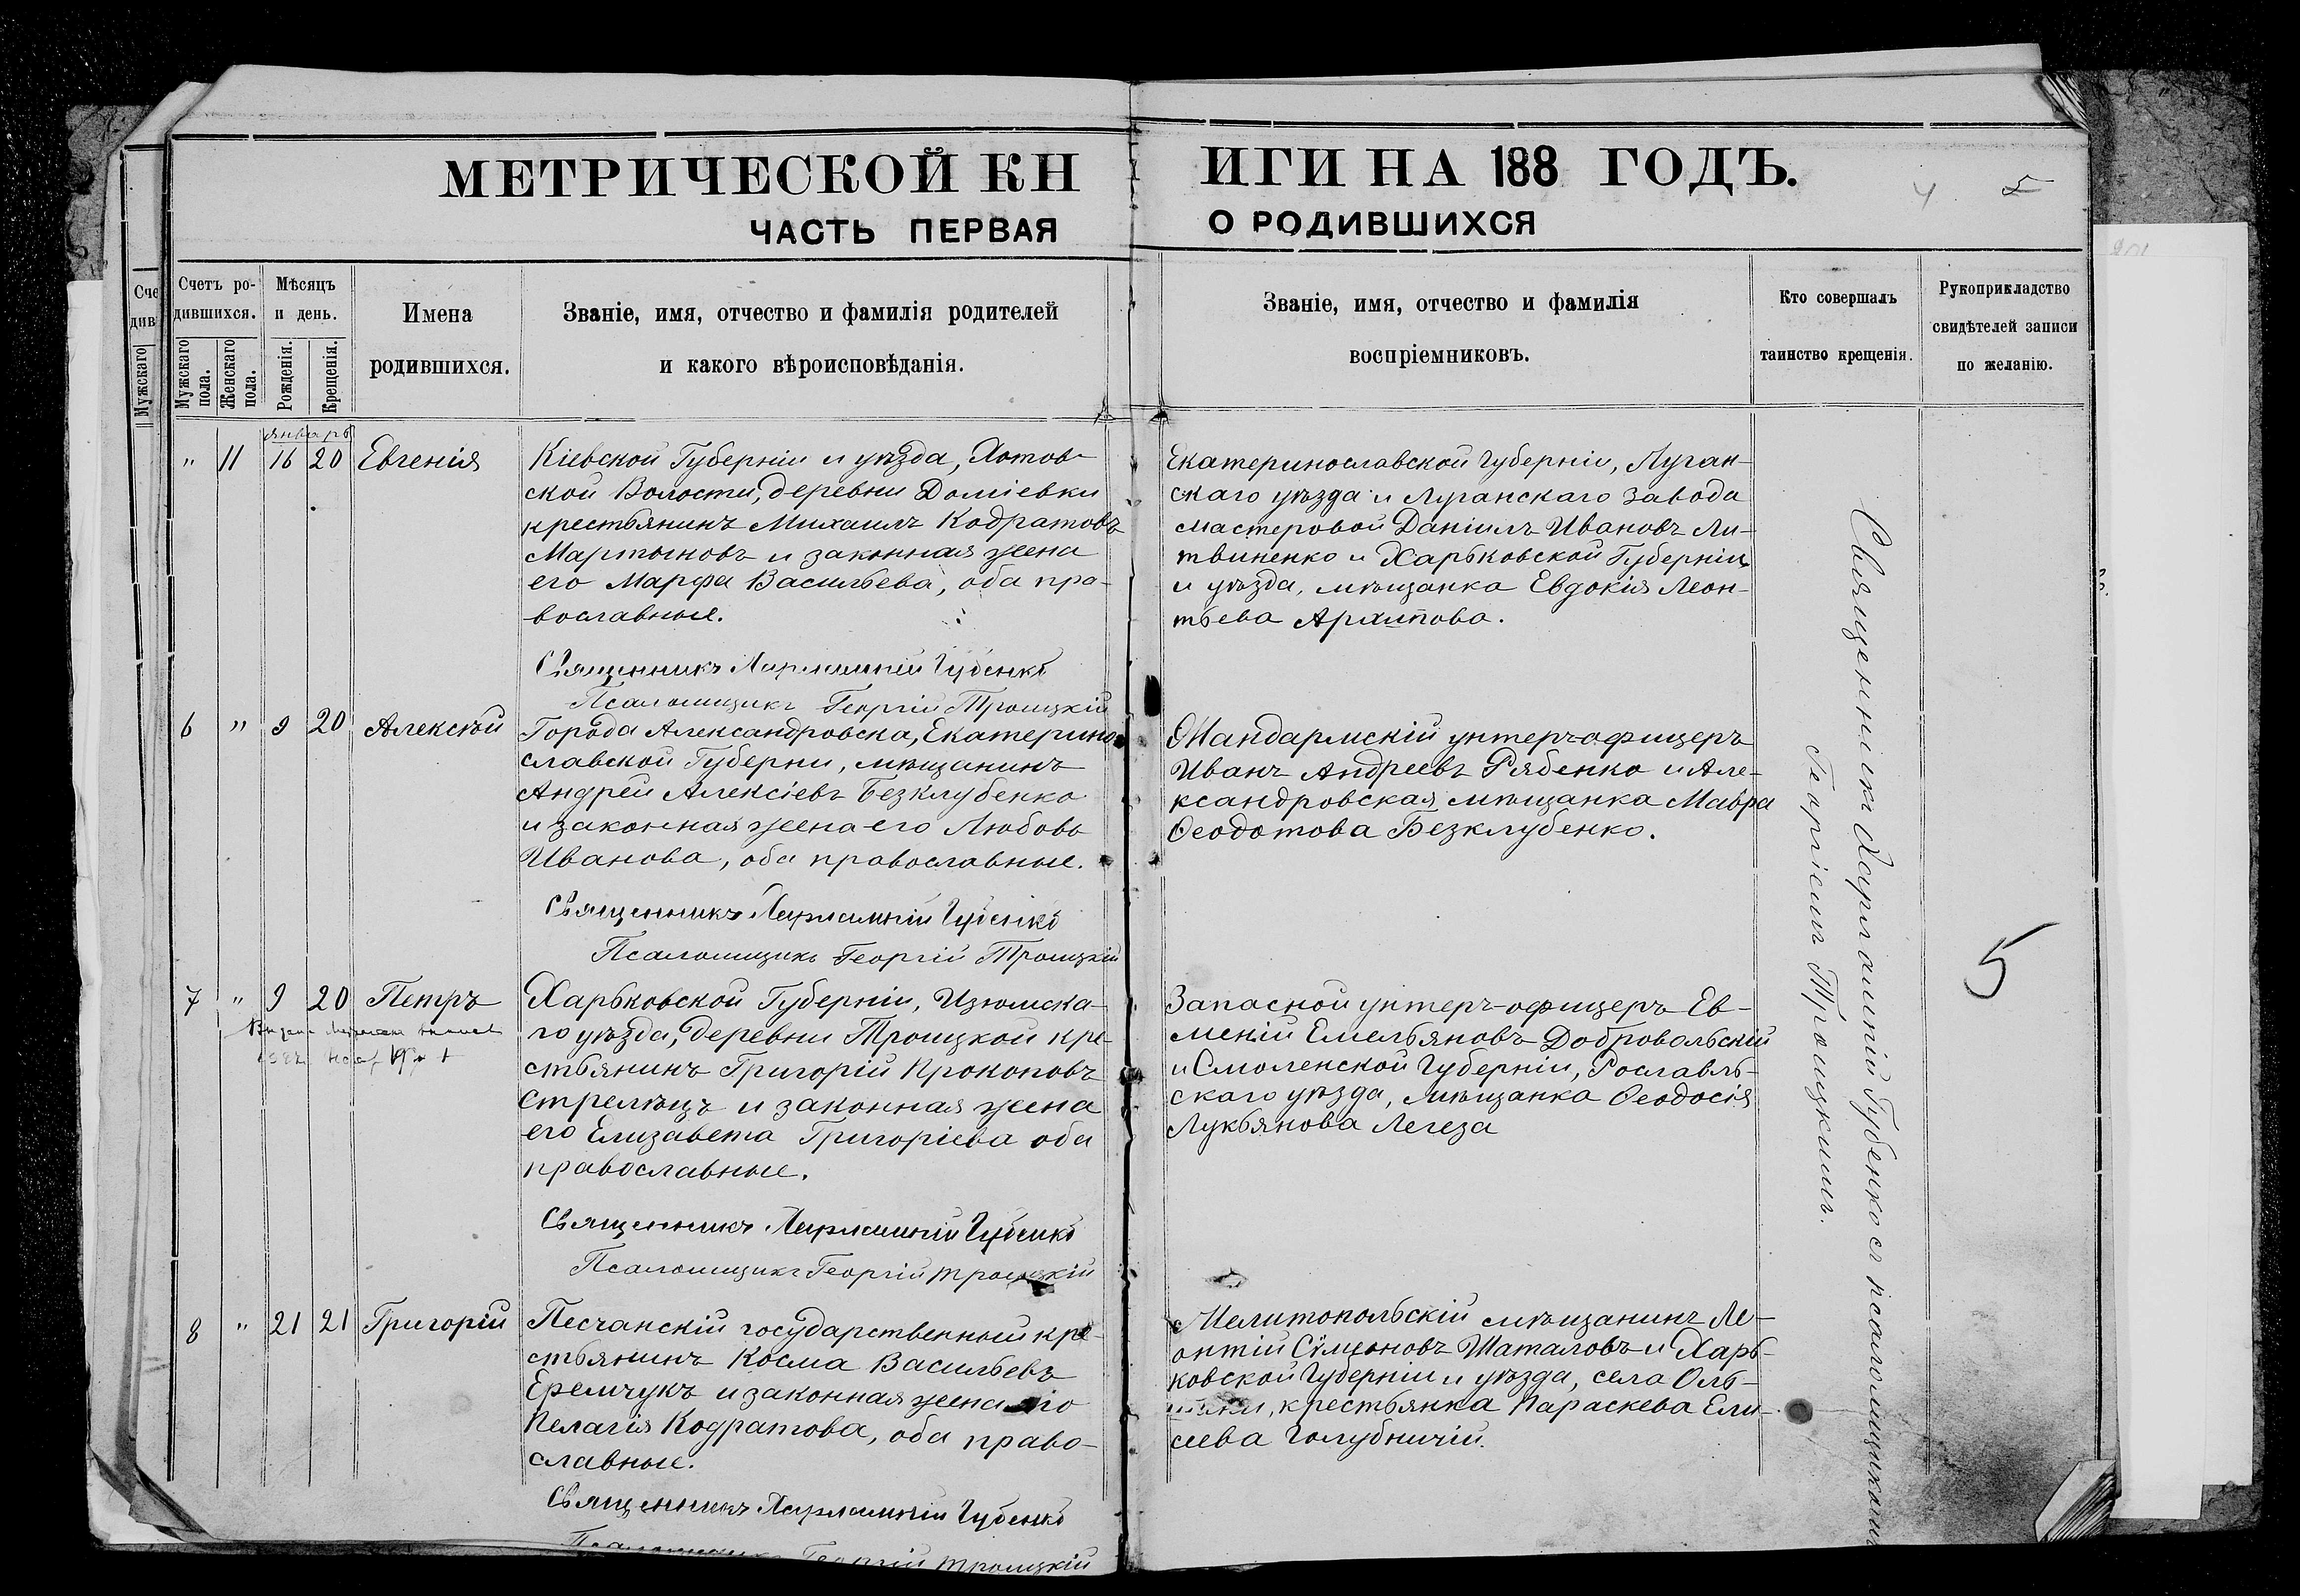 МЕТРИЧЕСКОЙ КНИГИ НА 188 ГОДЪ.
ЧАСТЬ ПЕРВАЯ О РОДИВШИХСЯ
4 5
Счетъ родившихся.
Мужскаго пола.
Женскаго пола.
Мѣсяцъ и день.
Рожденія.
Крещенія.
Имена
родившихся.
Званіе, имя, отчество и фамилія родителей
и какого вѣроисповѣданія.
Званіе, имя, отчество и фамилія
воспріемниковъ.
Кто совершалъ
таинство крещенія.
Рукоприкладство
свидѣтелей записи
по желанію.
Январь
" 11 16 20 Евгенія
Кіевской Губерніи и уѣзда, Хотов-
ской Волости, деревни Доміевки
крестьянинъ Михаилъ Кодратовъ
Мартыновъ и законная жена
его Марфа Васильева, оба пра-
вославные.
Священникъ Харлампій Губенко
Псаломщикъ Георгій Троицкій
Екатеринославской Губерніи, Луган-
скаго уѣзда и Луганскаго завода
мастеровой Даніилъ Ивановъ Ли-
твиненко и Харьковской Губерніи
и уѣзда, мѣщанка Евдокія Леон-
тьева Архипова.
6 " 9 20 Алексѣй
Города Александровска, Екатерино-
славской Губерни, мѣщанинъ
Андрей Алексіевъ Безклубенко
и законная жена его Любовь
Иванова, оба православные.
Священникъ Харлампій Губенко
Псаломщикъ Георгій Троицкій
Жандармскій унтеръ-офицеръ
Иванъ Андреевъ Рябенко и Але-
ксандровская мѣщанка Мавра
Ѳеодотова Безклубенко.
7 " 9 20 Петръ
Харьковской Губерніи, Изюмска-
го уѣзда, деревни Троицкой кре-
стьянинъ Григорій Прокоповъ
Стрелецъ и законная жена
его Елизавета Григоріева оба
православные.
Священникъ Харлампій Губенко
Псаломщикъ Георгій Троицкій
Запасной унтеръ-офицеръ Ев-
меній Емельяновъ Добровольскій
и Смоленской Губерніи, Рославль-
скаго уѣзда, мѣщанка Ѳеодосія
Лукьянова Легеза
8 " 21 21 Григорій
Песчанскій государственный кре-
стьянинъ Косма Васильевъ
Еремчукъ и законная жена его
Пелагія Кодратова, оба право-
славные.
Священникъ Харлампій Губенко
Псаломщикъ Георгій Троицкій
Мелитопольскій мѣщанинъ Ле-
онтій Сѵмеоновъ Шаталовъ и Харь-
ковской Губерніи и уѣзда, села Оль-
крестьянка Параскева Ели-
сеева Голубничій.
Священникъ Харлампій Губенко съ псаломщикомъ
Георгіемъ Троицкимъ.
5